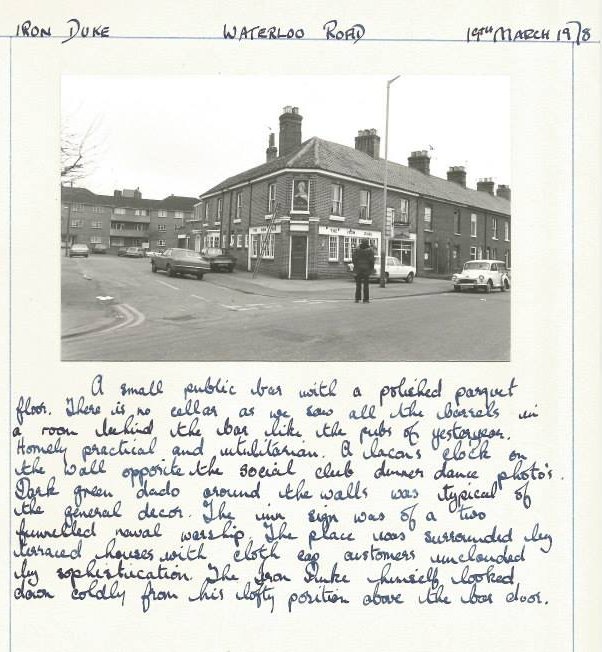 IRON DUKE WATERLOO ROAD 19TH MARCH 1978
THE IRON DUKE
A small public bar with a polished parquet
floor. There is no cellar as we saw all the barrels in
a room behind the bar like the pubs of yesteryear.
Homely practical and utilitarian. A lacons clock on
the wall opposite the social club dinner dance photo's.
Dark green dado around the walls was typical of
the general decor. The inn sign was of a two
funnelled naval warship. The place was surrounded by
terraced houses with cloth cap customers unclouded
by sophistication. The Iron Duke himself looked
down coldly from his lofty position above the bar door.